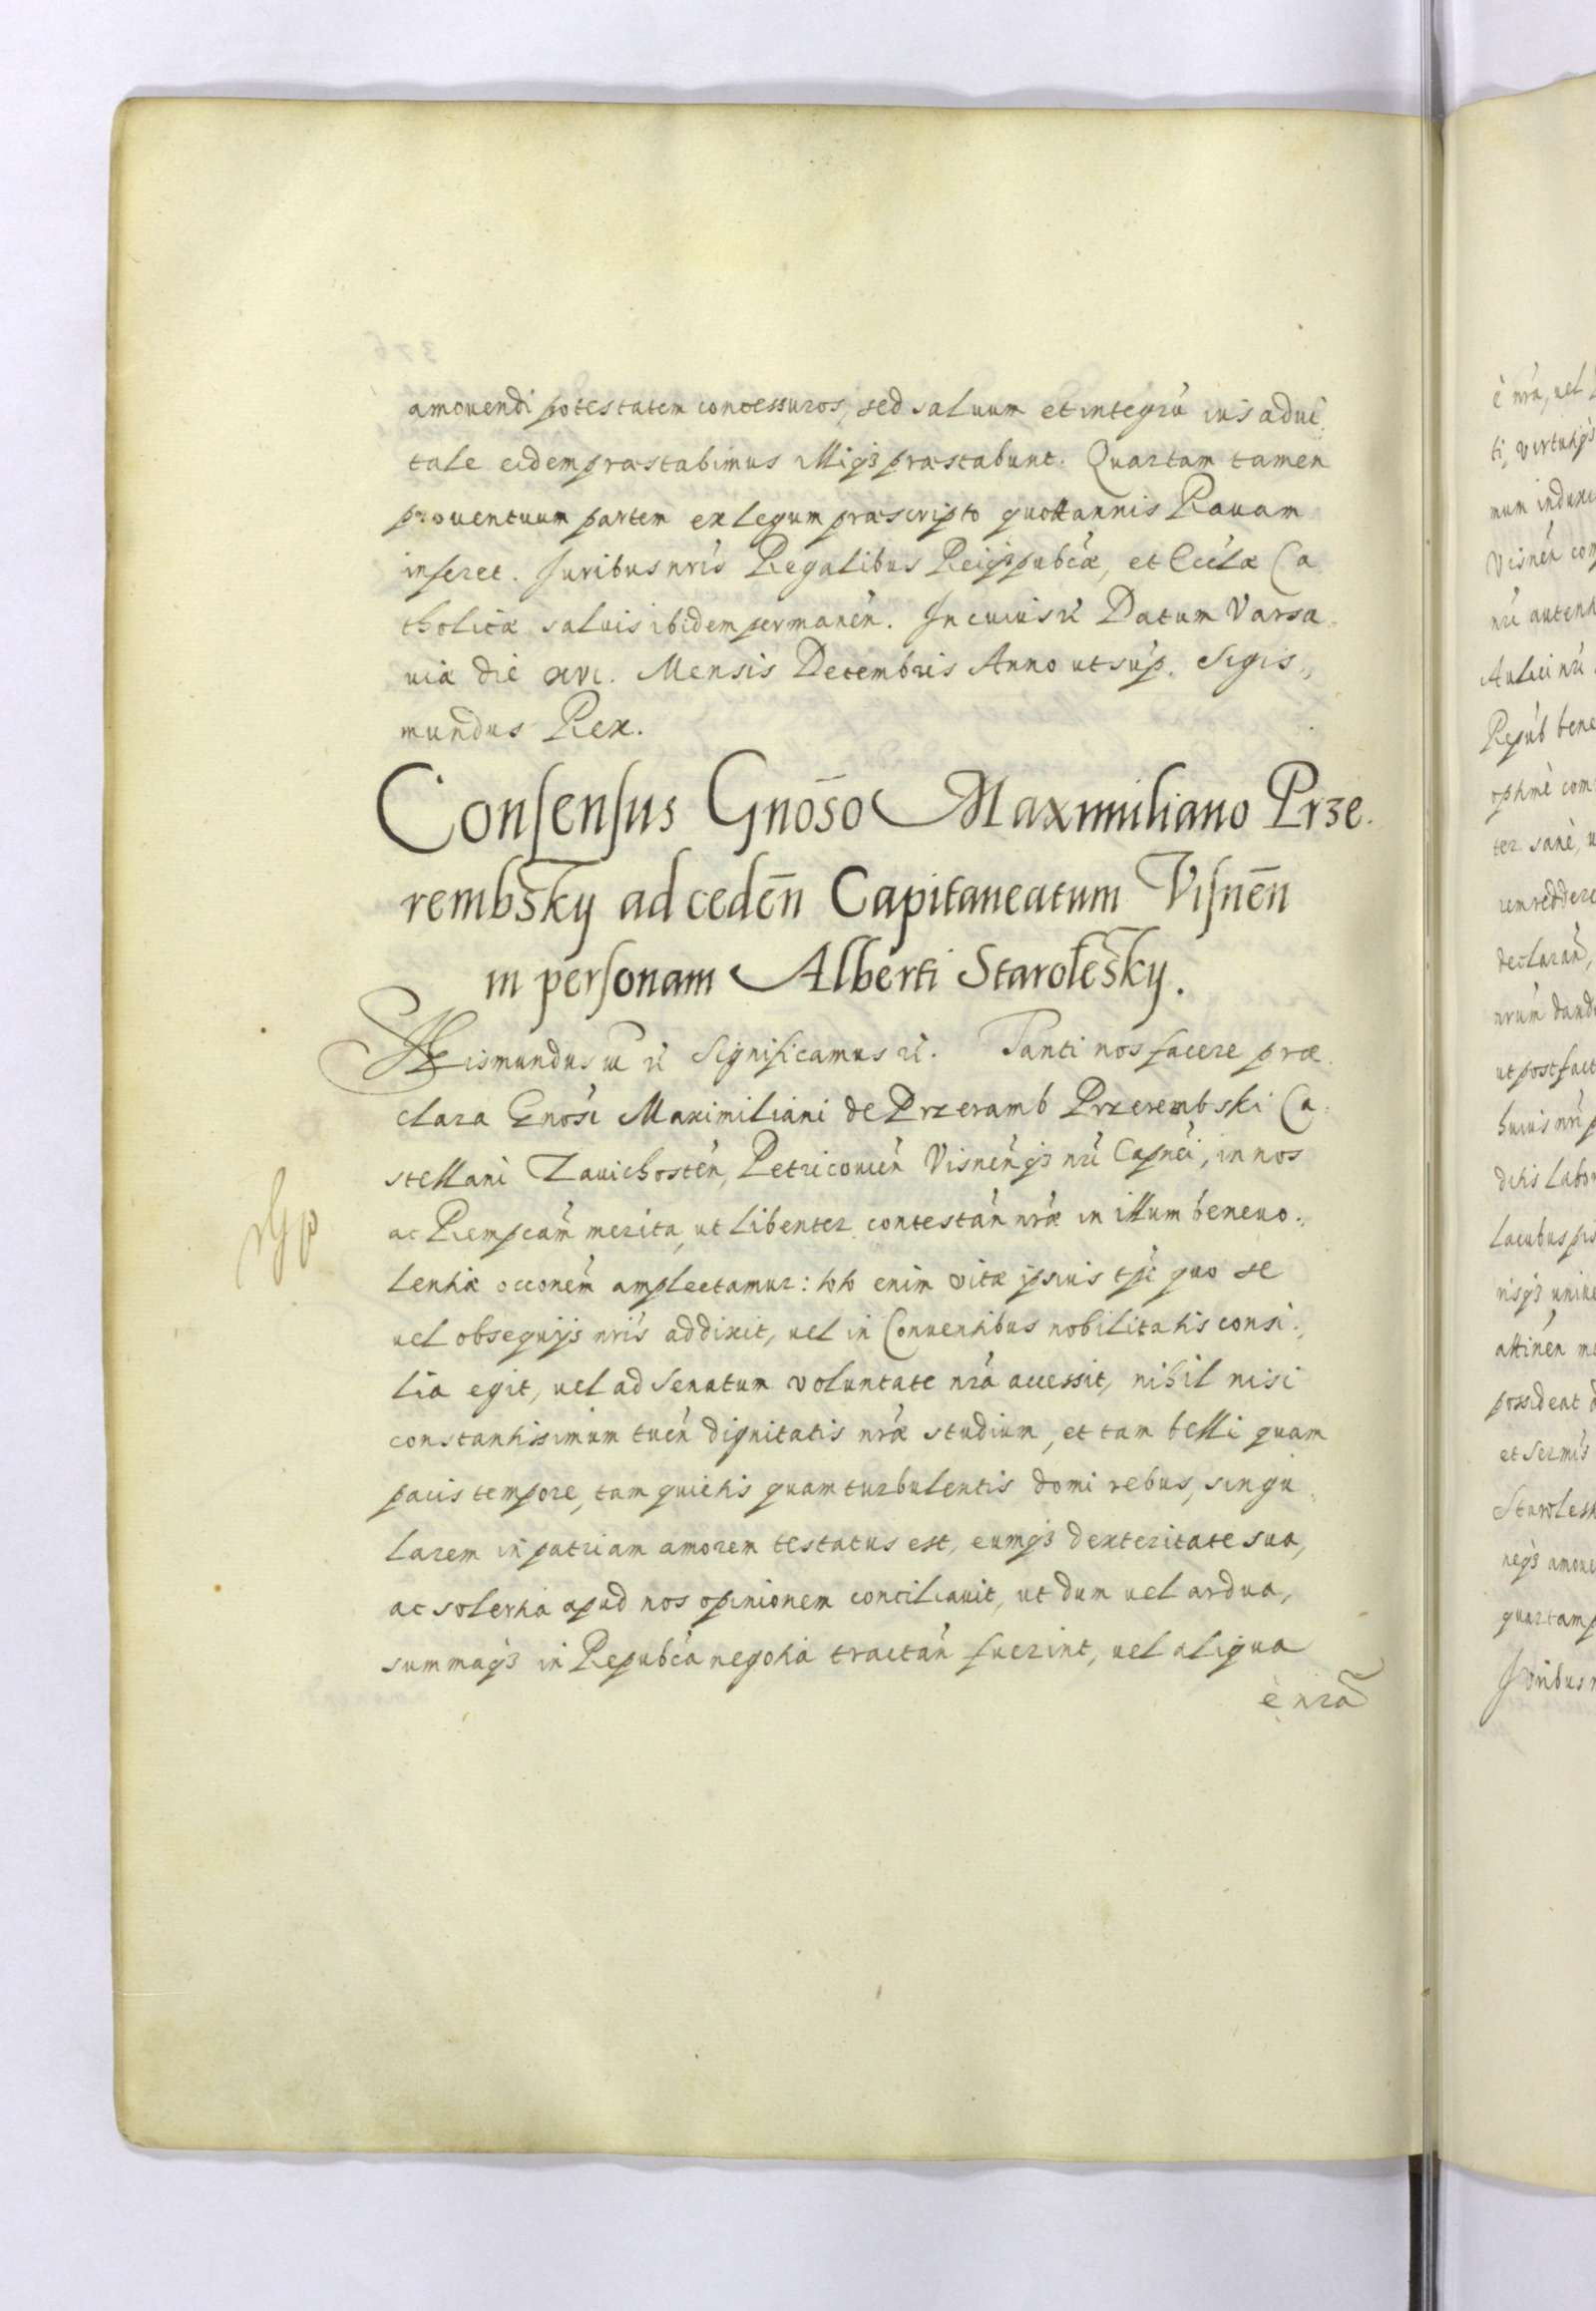 amovendi potestatem concessuros, sed saluum et integrũ ius adui.
tale eidem præstabimus illiqȝ præstabunt. Quartam tamen
prouentuum partem ex legum præscripto quottannis Rauam
inferet. Juribus nris Regalibus Reiqȝ pubcæ, et Ecclæ Ca
tholicæ saluis ibidem permanen̄. In cuius rei Datum Varsa.
uiæ die xvi. Mensis Decembris Anno ut sup. Sigis.,
mundus Rex.
Consensus Gnōso Maximiliano Prze.
rembsky ad cedēn Capitaneatum Visnēn
in personam Alberti Starolesky.
Sigismundus Significamus Tanti nos facere præ.
clara Gnosi Maximiliani de Przeramb Przerembski Ca.
stellani Zauichosten, Petricouien Visnenqȝ nri Capnei, in nos
ac Rempcam merita, ut libenter contestan nræ in illum beneuo.,
lentiæ occonem amplectamur: toto enim vitæ ipsius tpe quo se
uel obsequijs nris addixit, uel in Conuentibus nobilitatis consi.,
lia egit, uel ad Senatum voluntate nra accessit, nihil nisi
constantissimum tuen dignitatis nræ studium, et tam belli quam
pacis tempore, tam quietis quam turbulentis domi rebus, singu.,
larem in patriam amorem testatus est, eumqȝ dexteritate sua,
ac solertia apud nos opinionem conciliauit, ut dum uel ardua,
summaqȝ in Repubca negotia tractan fuerint, uel aliqua
è nra
è nra, uel
ti, virtutiqȝ
num induxi
Visnen
nri autent
Aulici nri
Repub bene
optime com
ter sanè, u
rem reddere
declaran,
nrum dand
ut post fact
huius nri p
ditis labo
lacubus pis
risqȝ unive
attinen me
possideat d
et Sermis
Starolesk
neqȝ amoue
quartam p
Juribus n